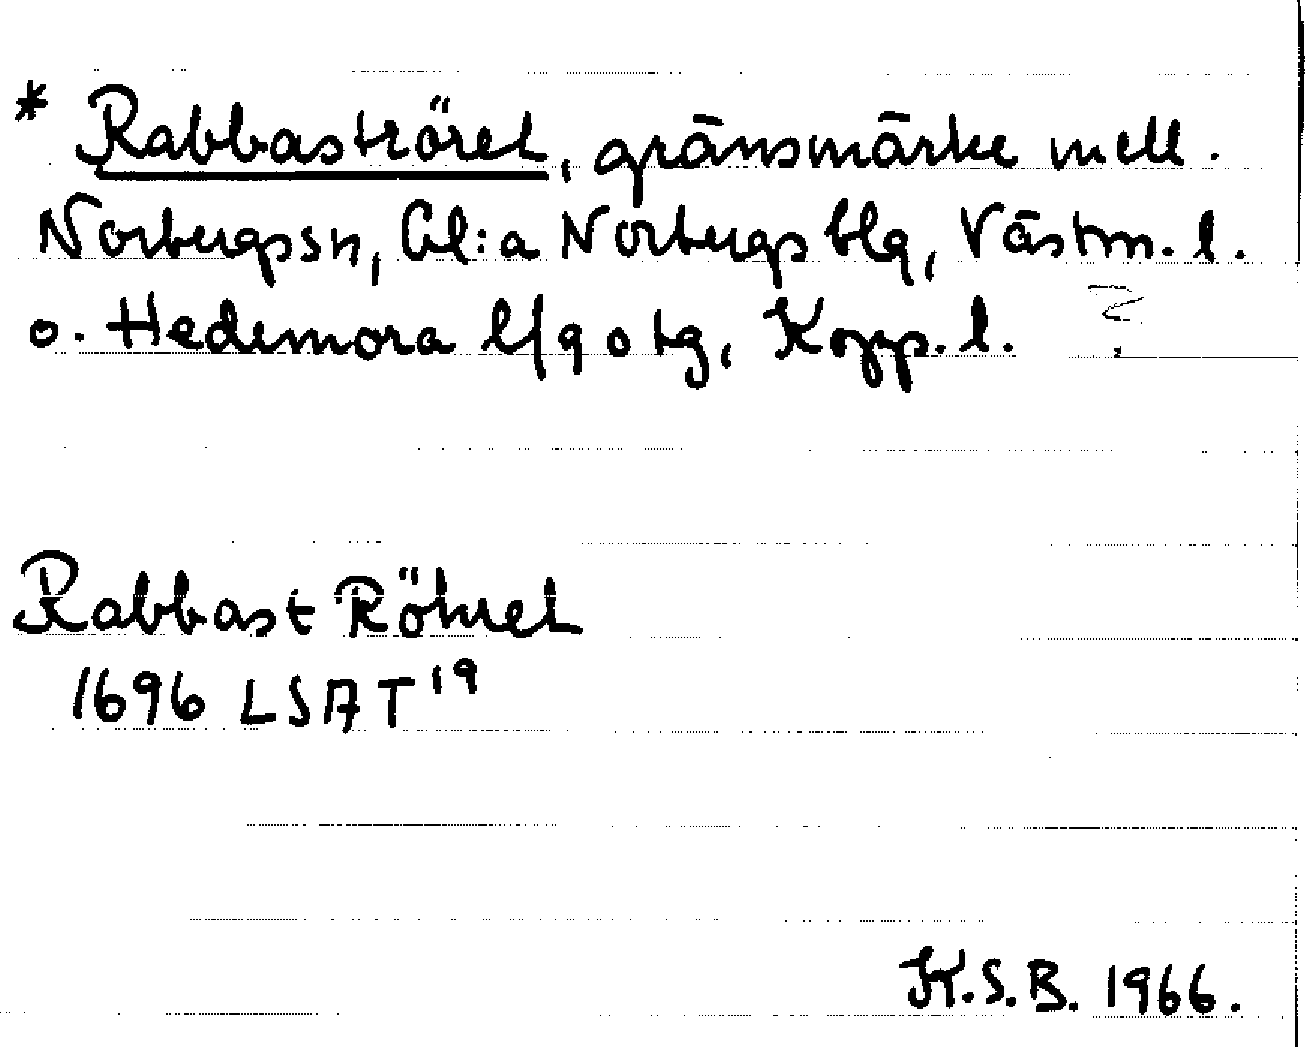 * Rabbaströret, gränsmärke mell.
Norbergs sn, Gl:a Norbergs blg, Västm. l.
o. Hedemora l/g o tg, Kopp. l. ?
Rabbast Röhret
1696 LSA T 19
K.S.B. 1966.